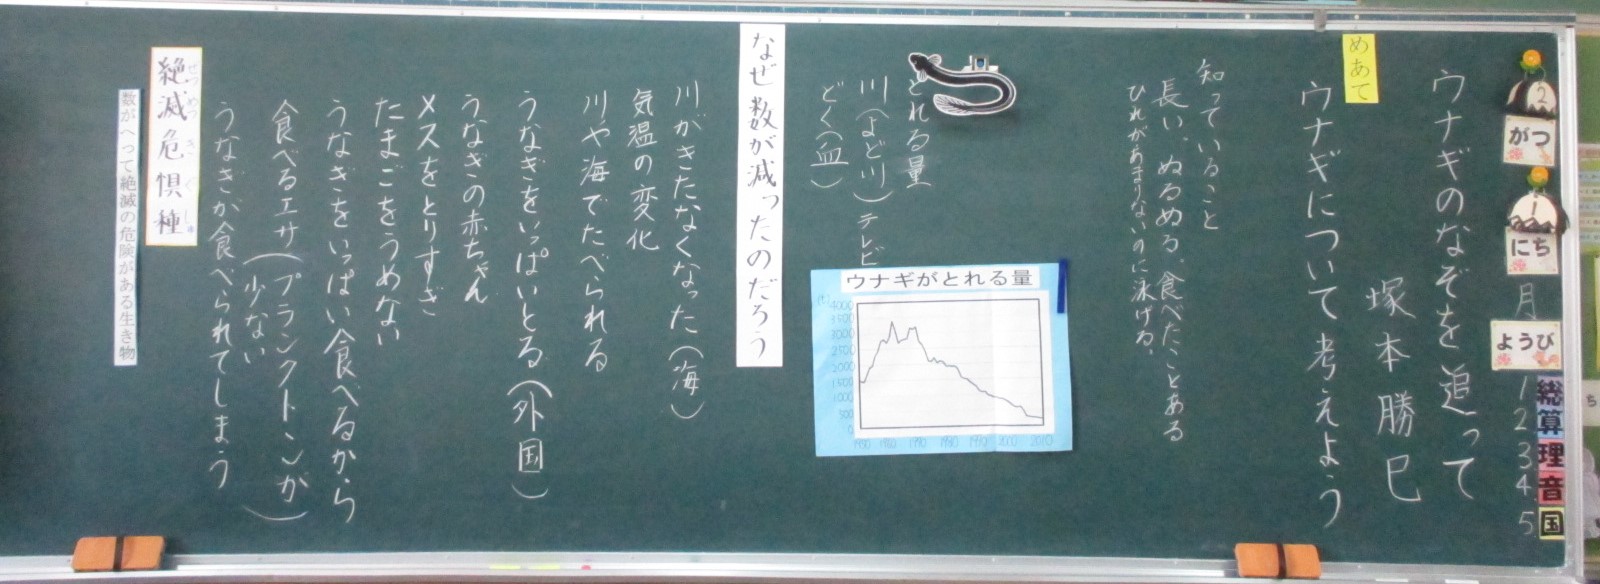 2
がつ
1
にち
月
ようび
1 総
2 算
3 理
4 音
5 国
ウナギのなぞを追って
塚本勝巳
めあて
ウナギについて考えよう
知っていること
長い、ぬるぬる、食べたことある
ひれがあまりないのに泳げる、
とれる量
川(よど川)テレビ
どく(血)
ウナギがとれる量
(t)
4000
3500
3000
2500
2000
1500
1000
500
0
1950 1960 1970 1980 1990 2000 2010
なぜ数が減ったのだろう
川がきたなくなった(海)
気温の変化
川や海でたべられる
うなぎをいっぱいとる(外国)
うなぎの赤ちゃん
メスをとりすぎ
たまごをうめない
うなぎをいっぱい食べるから
食べるエサ(プランクトンが
少ない)
うなぎが食べられてしまう
絶滅危惧種
ぜつめつきぐしゅ
数がへって絶滅の危険がある生き物